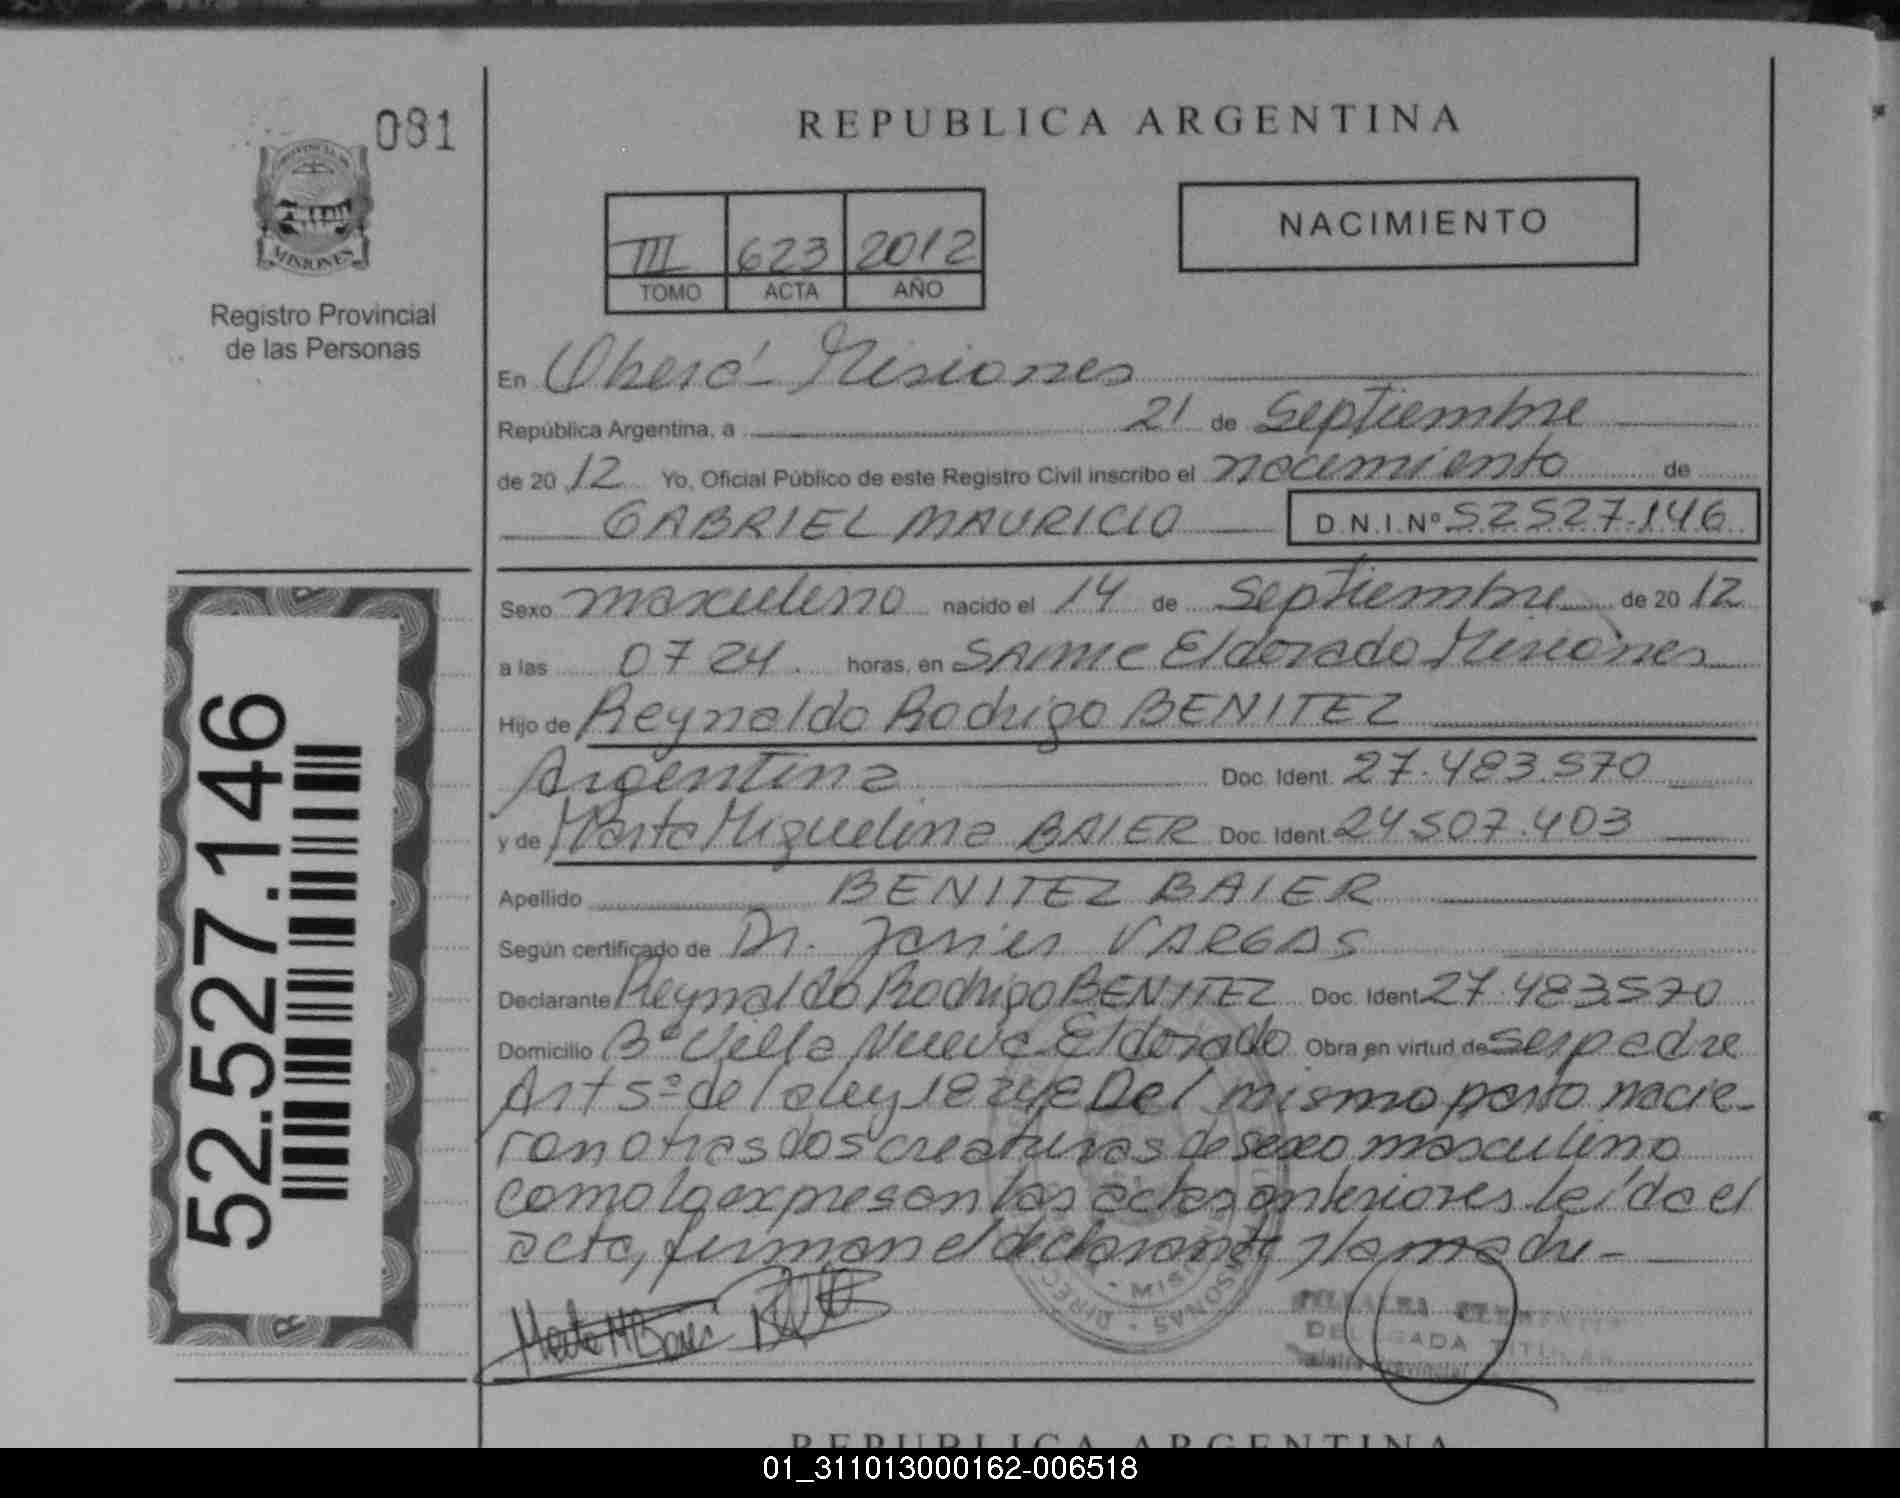 081
REPUBLICA ARGENTINA
NACIMIENTO
III 623 2012
TOMO ACTA AÑO
MISIONES
Registro Provincial
de las Personas
En Oberá - Misiones
República Argentina, a 21 de Septiembre
de 2012 Yo, Oficial Público de este Registro Civil inscribo el nacimiento de
GABRIEL MAURICIO D.N.I.Nº 52527.146
Sexo masculino nacido el 14 de Septiembre de 2012
a las 07 24. horas, en SAMIC Eldorado Misiones
Hijo de Reynaldo Rodrigo BENITEZ
Argentina Doc. Ident. 27.483.570
y de Marta Miguelina BAIER Doc. Ident. 24.507.403
Apellido BENITEZ BAIER
Según certificado de Dr. Javier VARGAS
Declarante Reynaldo Rodrigo BENITEZ Doc. Ident. 27.483.570
Domicilio Bº Villa Nueva Eldorado Obra en virtud de ser padre
Art 5º de la ley 18248 Del mismo parto nacie-
ron otras dos creaturas de sexo masculino
como lo expresan las actas anteriores leída el
acta, firman el declarante y la madre -
52.527.146
Marta M Baier
DELEGADA TITULAR
REPUBLICA ARGENTINA
01_311013000162-006518